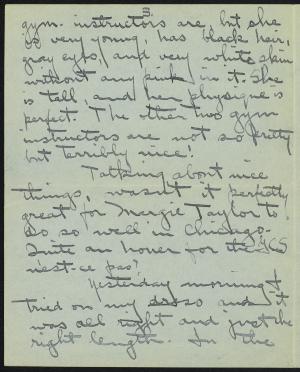 3.
gym. instructors are, but she
is very young, has black hair,
gray eyes, and very white skin
without any pink in it. She
is tall and her physique is
perfect. The other two gym
instructors are not so pretty
but terribly nice!
Talking about nice
things, wasn't it perfectly
great for Margie Taylor to
do so well in Chicago.
Quite an honor for the GCS
nest-ce pas?
Yesterday morning I
tried on my dress and it
was all right and just the
right length. In the